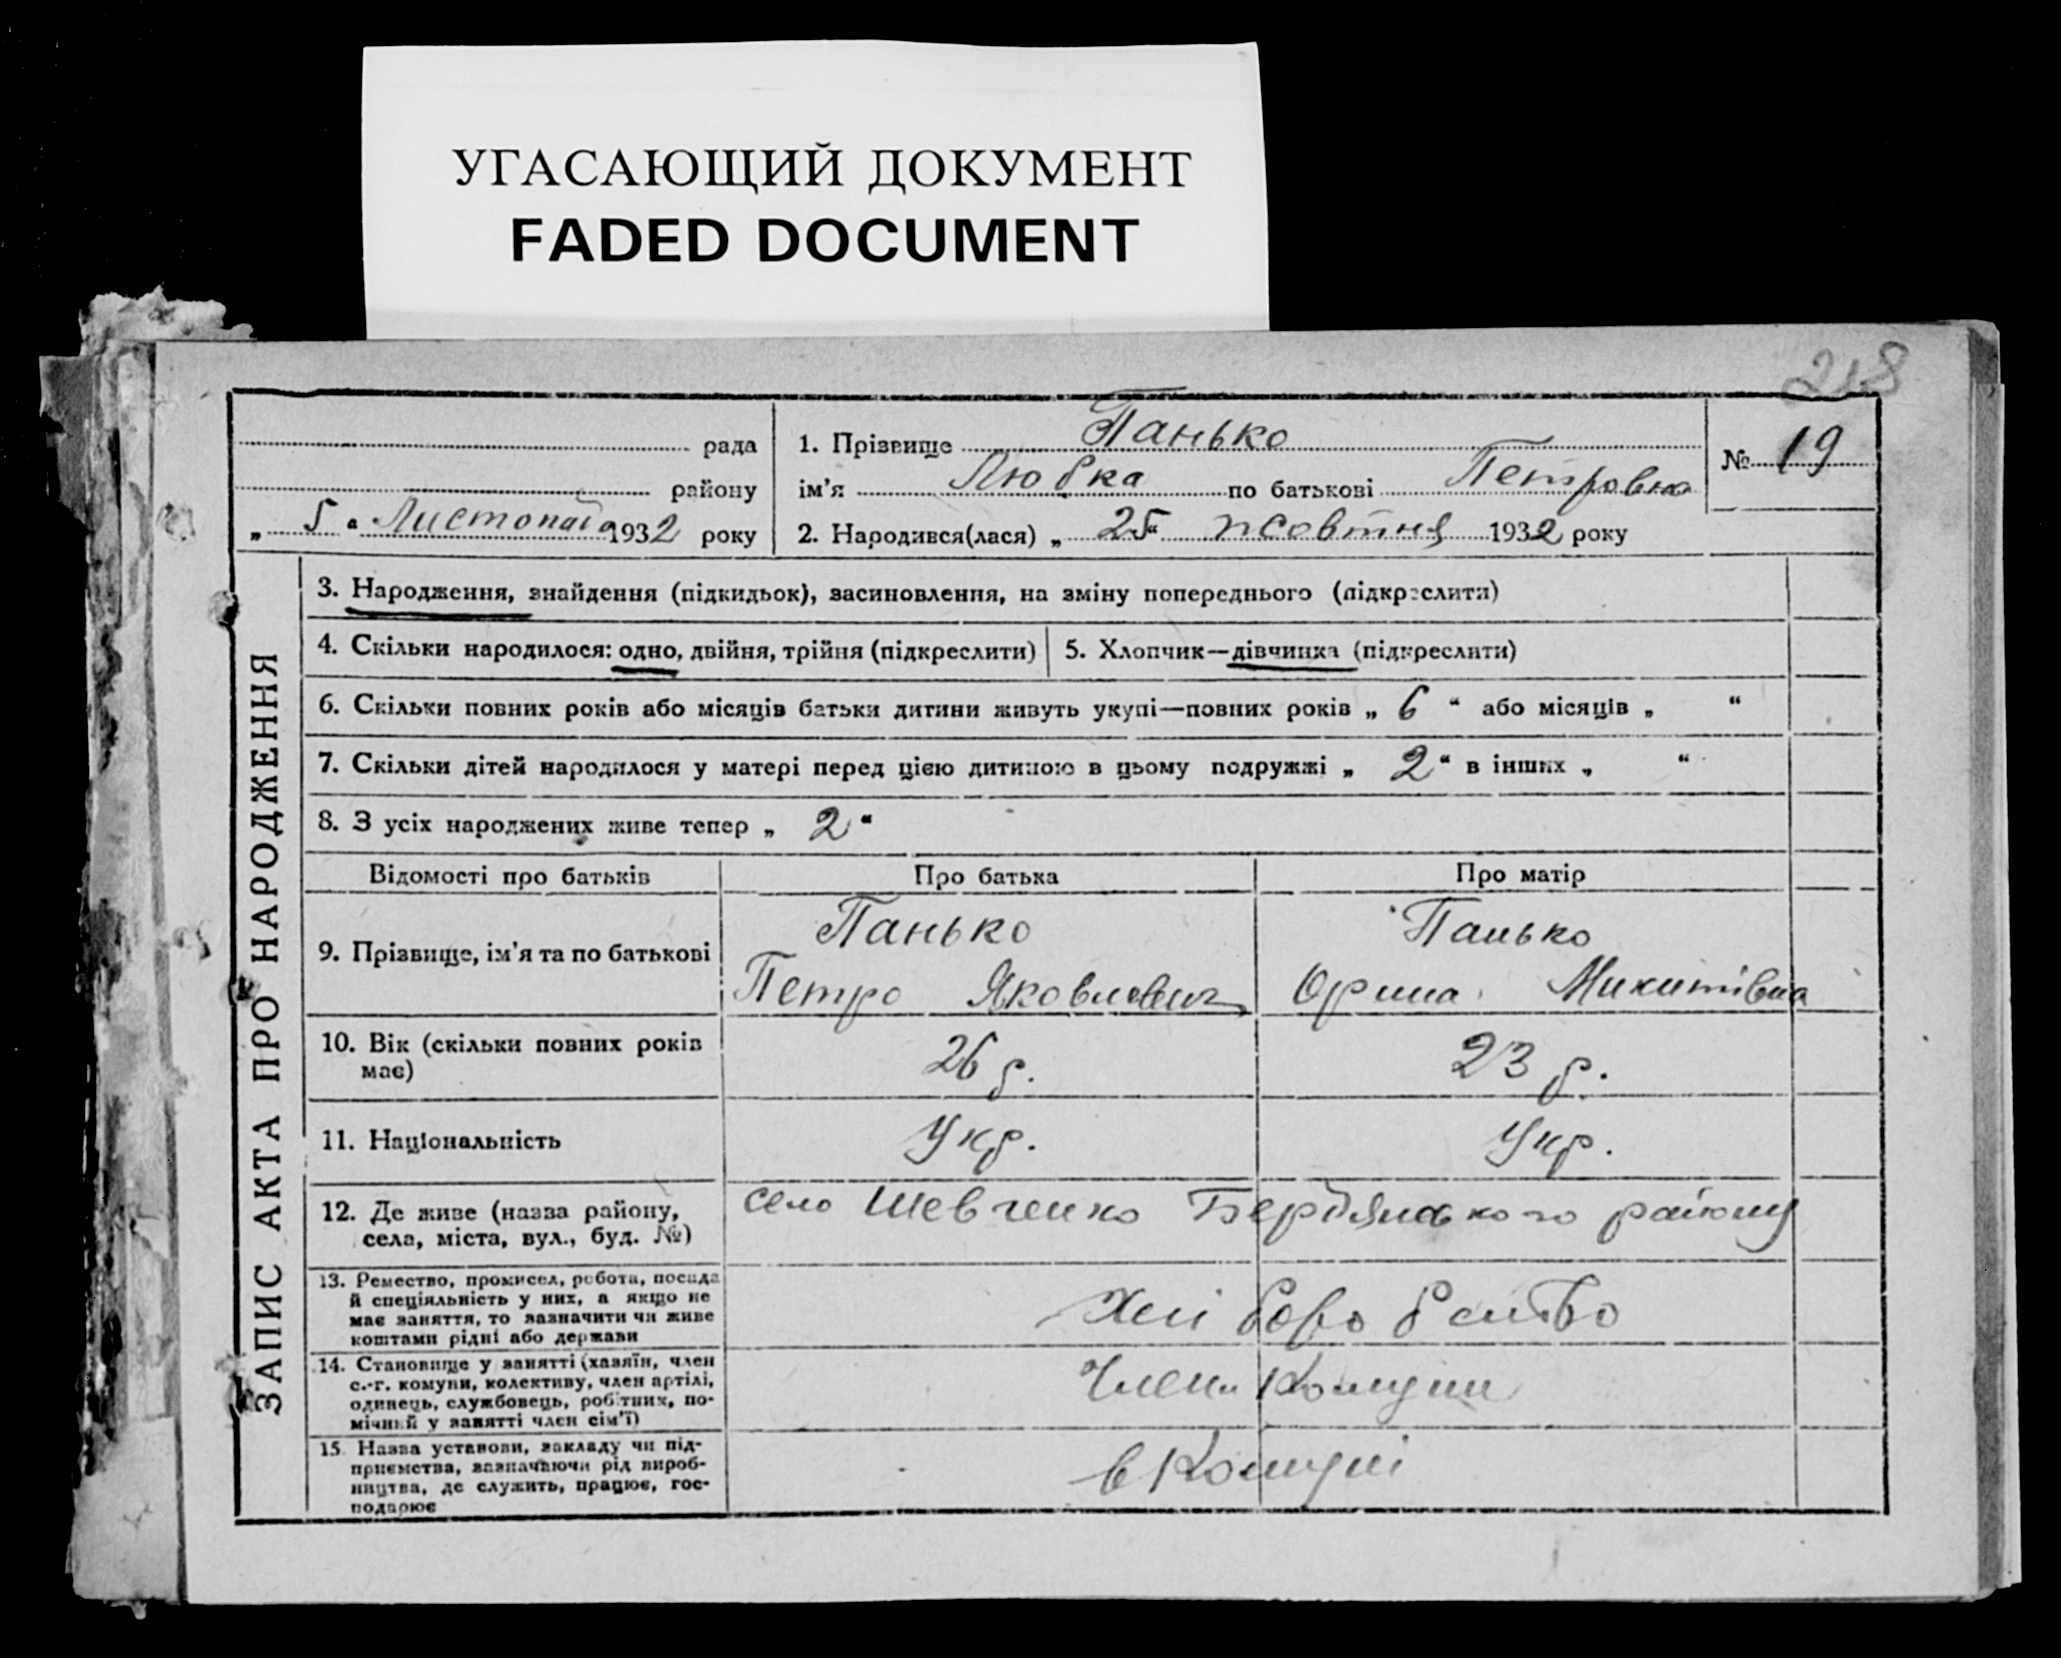 УГАСАЮЩИЙ ДОКУМЕНТ
FADED DOCUMENT
218
рада
району
„ 5 “ Листопада 1932 року
1. Прізвище Панько
ім'я Любка по батькові Петровна
2. Народився(лася) „ 25 “ жовтня 1932 року
№ 19
ЗАПИС АКТА ПРО НАРОДЖЕННЯ
3. Народження, знайдення (підкидьок), засиновлення, на зміну попереднього (підкреслити)
4. Скільки народилося: одно, двійня, трійня (підкреслити)
5. Хлопчик—дівчинка (підкреслити)
6. Скільки повних років або місяців батьки дитини живуть укупі—повних років „ 6 “ або місяців „ “
7. Скільки дітей народилося у матері перед цією дитиною в цьому подружжі „ 2 “ в інших „ “
8. З усіх народжених живе тепер „ 2 “
Відомості про батьків
Про батька
Про матір
9. Прізвище, ім'я та по батькові
Панько
Петро Яковлевич
Панько
Орина Микитівна
10. Вік (скільки повних років
має)
26 р.
23 р.
11. Національність
Укр.
Укр.
12. Де живе (назва району,
села, міста, вул., буд. №)
село Шевченко Бердянського району
13. Ремество, промисел, робота, посада
й спеціяльність у них, а якщо не
має заняття, то зазначити чи живе
коштами рідні або держави
Хліборобство
14. Становище у занятті (хазяїн, член
с.-г. комуни, колективу, член артілі,
одинець, службовець, робітник, по-
мічний у занятті член сім'ї)
Член Комуни
15. Назва установи, закладу чи під-
приємства, зазначаючи рід вироб-
ництва, де служить, працює, гос-
подарює
в Комуні